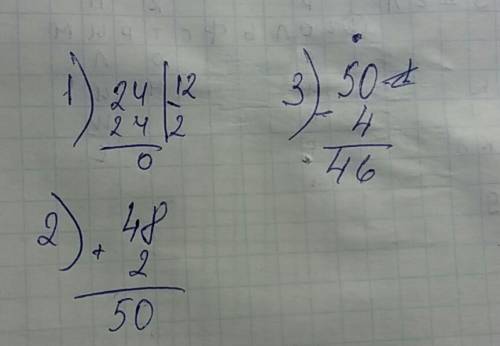 1) 24 | 12
24 | 2
0
2) 48
+ 2
50
3) 50
- 4
46